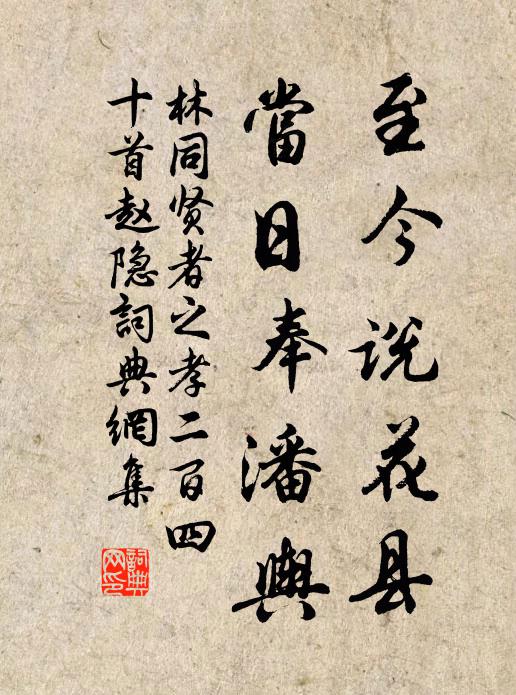 至今说花县
當日奉潘輿
林同贤者之孝二百四
十首赵隐詞典網集
詞典
网印